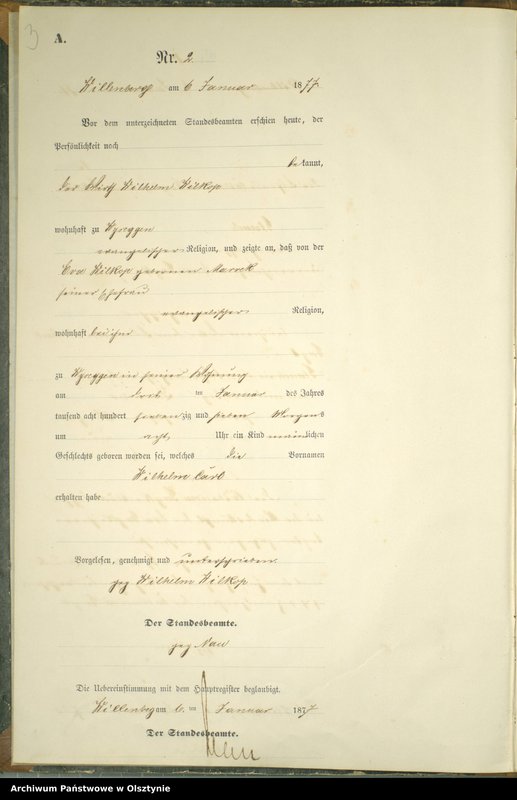 3
A.
Nr. 2.
Willenberg am 6 Januar 1877
Vor dem unterzeichneten Standesbeamten erschien heute, der
Persönlichkeit nach
bekannt,
der Wirth Wilhelm Wilkop
wohnhaft zu
evangelischer Religion, und zeigte an, daß von der
Eva Wilkop geborenen
seiner Ehefrau
evangelischer Religion,
wohnhaft bei ihm
zu in seiner Wohnung
am ten Januar des Jahres
tausend acht hundert siebenzig und sieben Morgens
um acht Uhr ein Kind männlichen
Geschlechts geboren worden sei, welches die Vornamen
Wilhelm Carl
erhalten habe
Vorgelesen, genehmigt und unterschrieben.
gez Wilhelm Wilkop
Der Standesbeamte.
gez
Die Uebereinstimmung mit dem Hauptregister beglaubigt.
Willenberg am 6. ten Januar 1877
Der Standesbeamte.
Archiwum Państwowe w Olsztynie